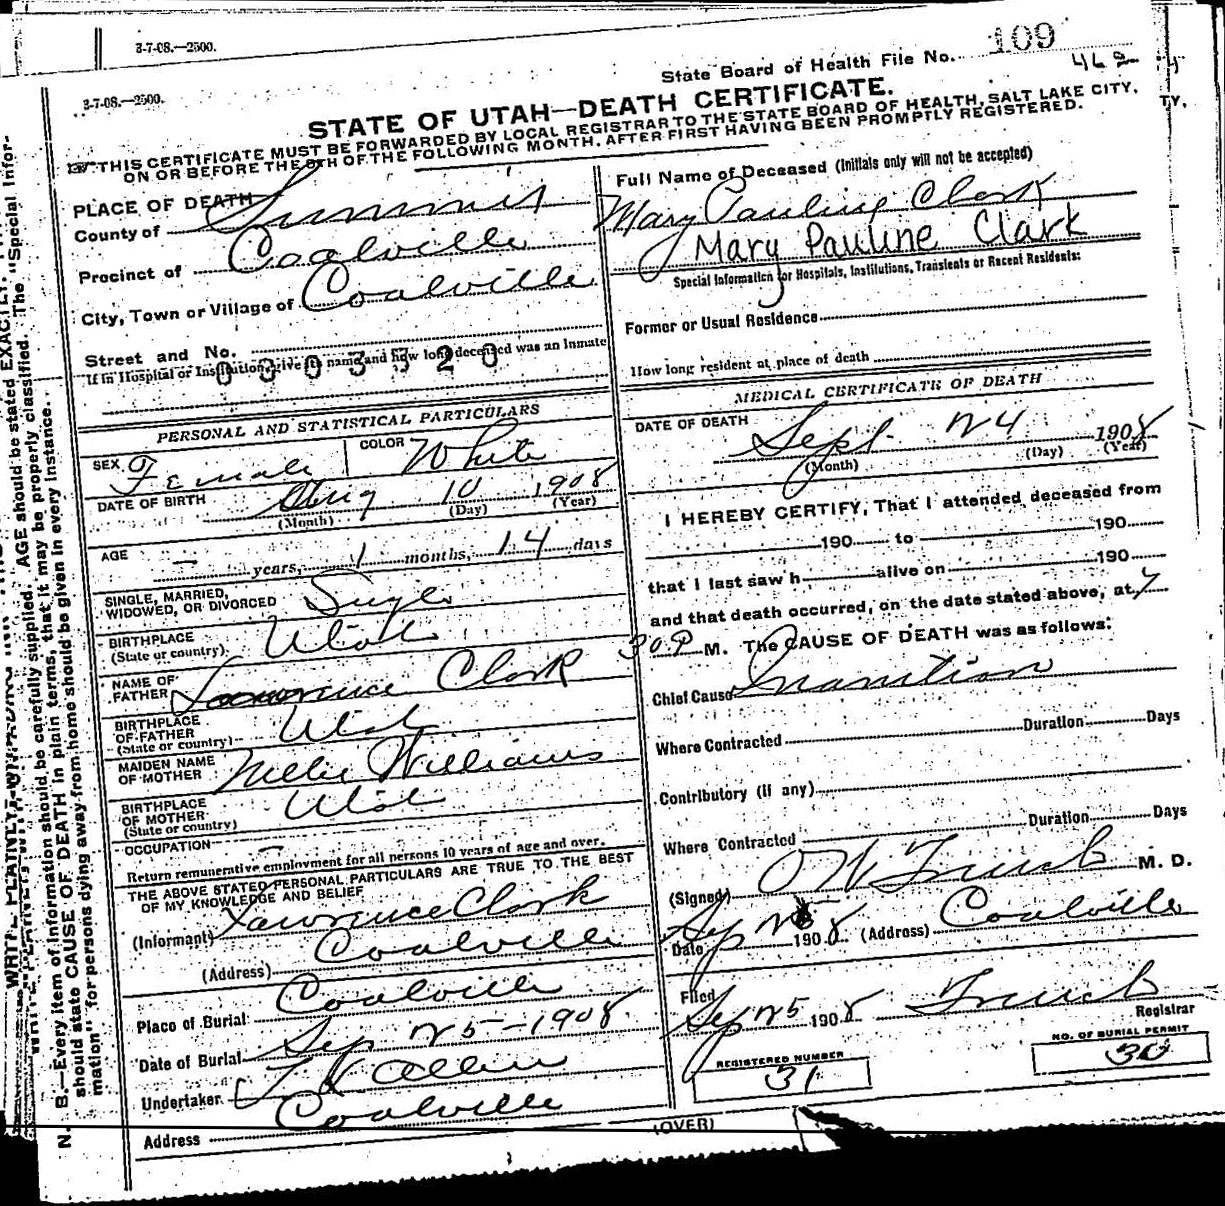 3-7-08.—2500.
3-7-08.—2500.
State Board of Health File No. 109
462
STATE OF UTAH—DEATH CERTIFICATE.
THIS CERTIFICATE MUST BE FORWARDED BY LOCAL REGISTRAR TO THE STATE BOARD OF HEALTH, SALT LAKE CITY,
ON OR BEFORE THE 5TH OF THE FOLLOWING MONTH, AFTER FIRST HAVING BEEN PROMPTLY REGISTERED.
TY,
PLACE OF DEATH
County of Summit
Precinct of Coalville
City, Town or Village of Coalville
Street and No.
If in Hospital or Institution, give its name and how long deceased was an Inmate
PERSONAL AND STATISTICAL PARTICULARS
SEX Female COLOR White
DATE OF BIRTH Aug 10 1908
(Month) (Day) (Year)
AGE — years, 1 months, 14 days
SINGLE, MARRIED,
WIDOWED, OR DIVORCED Single
BIRTHPLACE
(State or country) Utah
NAME OF
FATHER Lawrence Clark
BIRTHPLACE
OF FATHER
(State or country) Utah
MAIDEN NAME
OF MOTHER Nellie Williams
BIRTHPLACE
OF MOTHER
(State or country) Utah
OCCUPATION —
Return remunerative employment for all persons 10 years of age and over.
THE ABOVE STATED PERSONAL PARTICULARS ARE TRUE TO THE BEST
OF MY KNOWLEDGE AND BELIEF
(Informant) Lawrence Clark
(Address) Coalville
Place of Burial Coalville
Date of Burial Sep 25-1908
Undertaker Allen
Address Coalville
Full Name of Deceased (Initials only will not be accepted)
Mary Pauline Clark
Mary Pauline Clark
Special Information for Hospitals, Institutions, Transients or Recent Residents:
Former or Usual Residence
How long resident at place of death
MEDICAL CERTIFICATE OF DEATH
DATE OF DEATH Sept. 24 1908
(Month) (Day) (Year)
I HEREBY CERTIFY, That I attended deceased from
190 to 190
that I last saw h alive on 190
and that death occurred, on the date stated above, at 7
30 P M. The CAUSE OF DEATH was as follows:
Chief Cause Inanition
Duration Days
Where Contracted
Contributory (if any)
Duration Days
Where Contracted
(Signed) M. D.
Date Sep 25 1908 (Address) Coalville
Filed Sep 25 1908
Registrar
REGISTERED NUMBER
31
NO. OF BURIAL PERMIT
30
(OVER)
N. B.—Every item of information should be carefully supplied. AGE should be stated EXACTLY.
should state CAUSE OF DEATH in plain terms, that it may be properly classified. The "Special Infor-
mation" for persons dying away from home should be given in every instance.